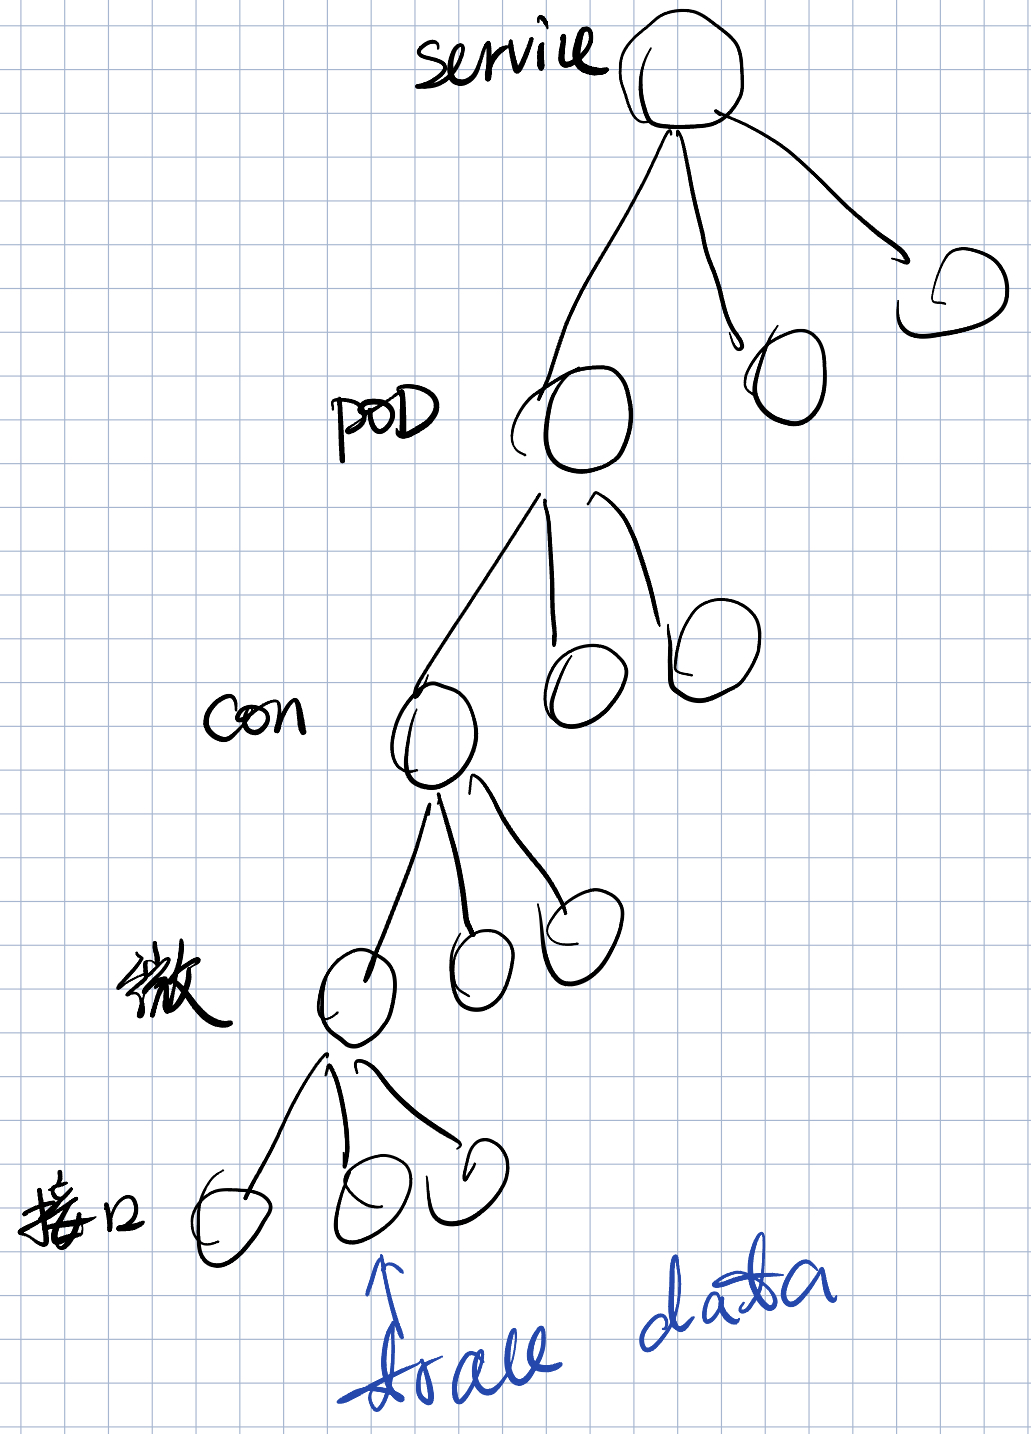 service
POD
con
微
接口
trace data